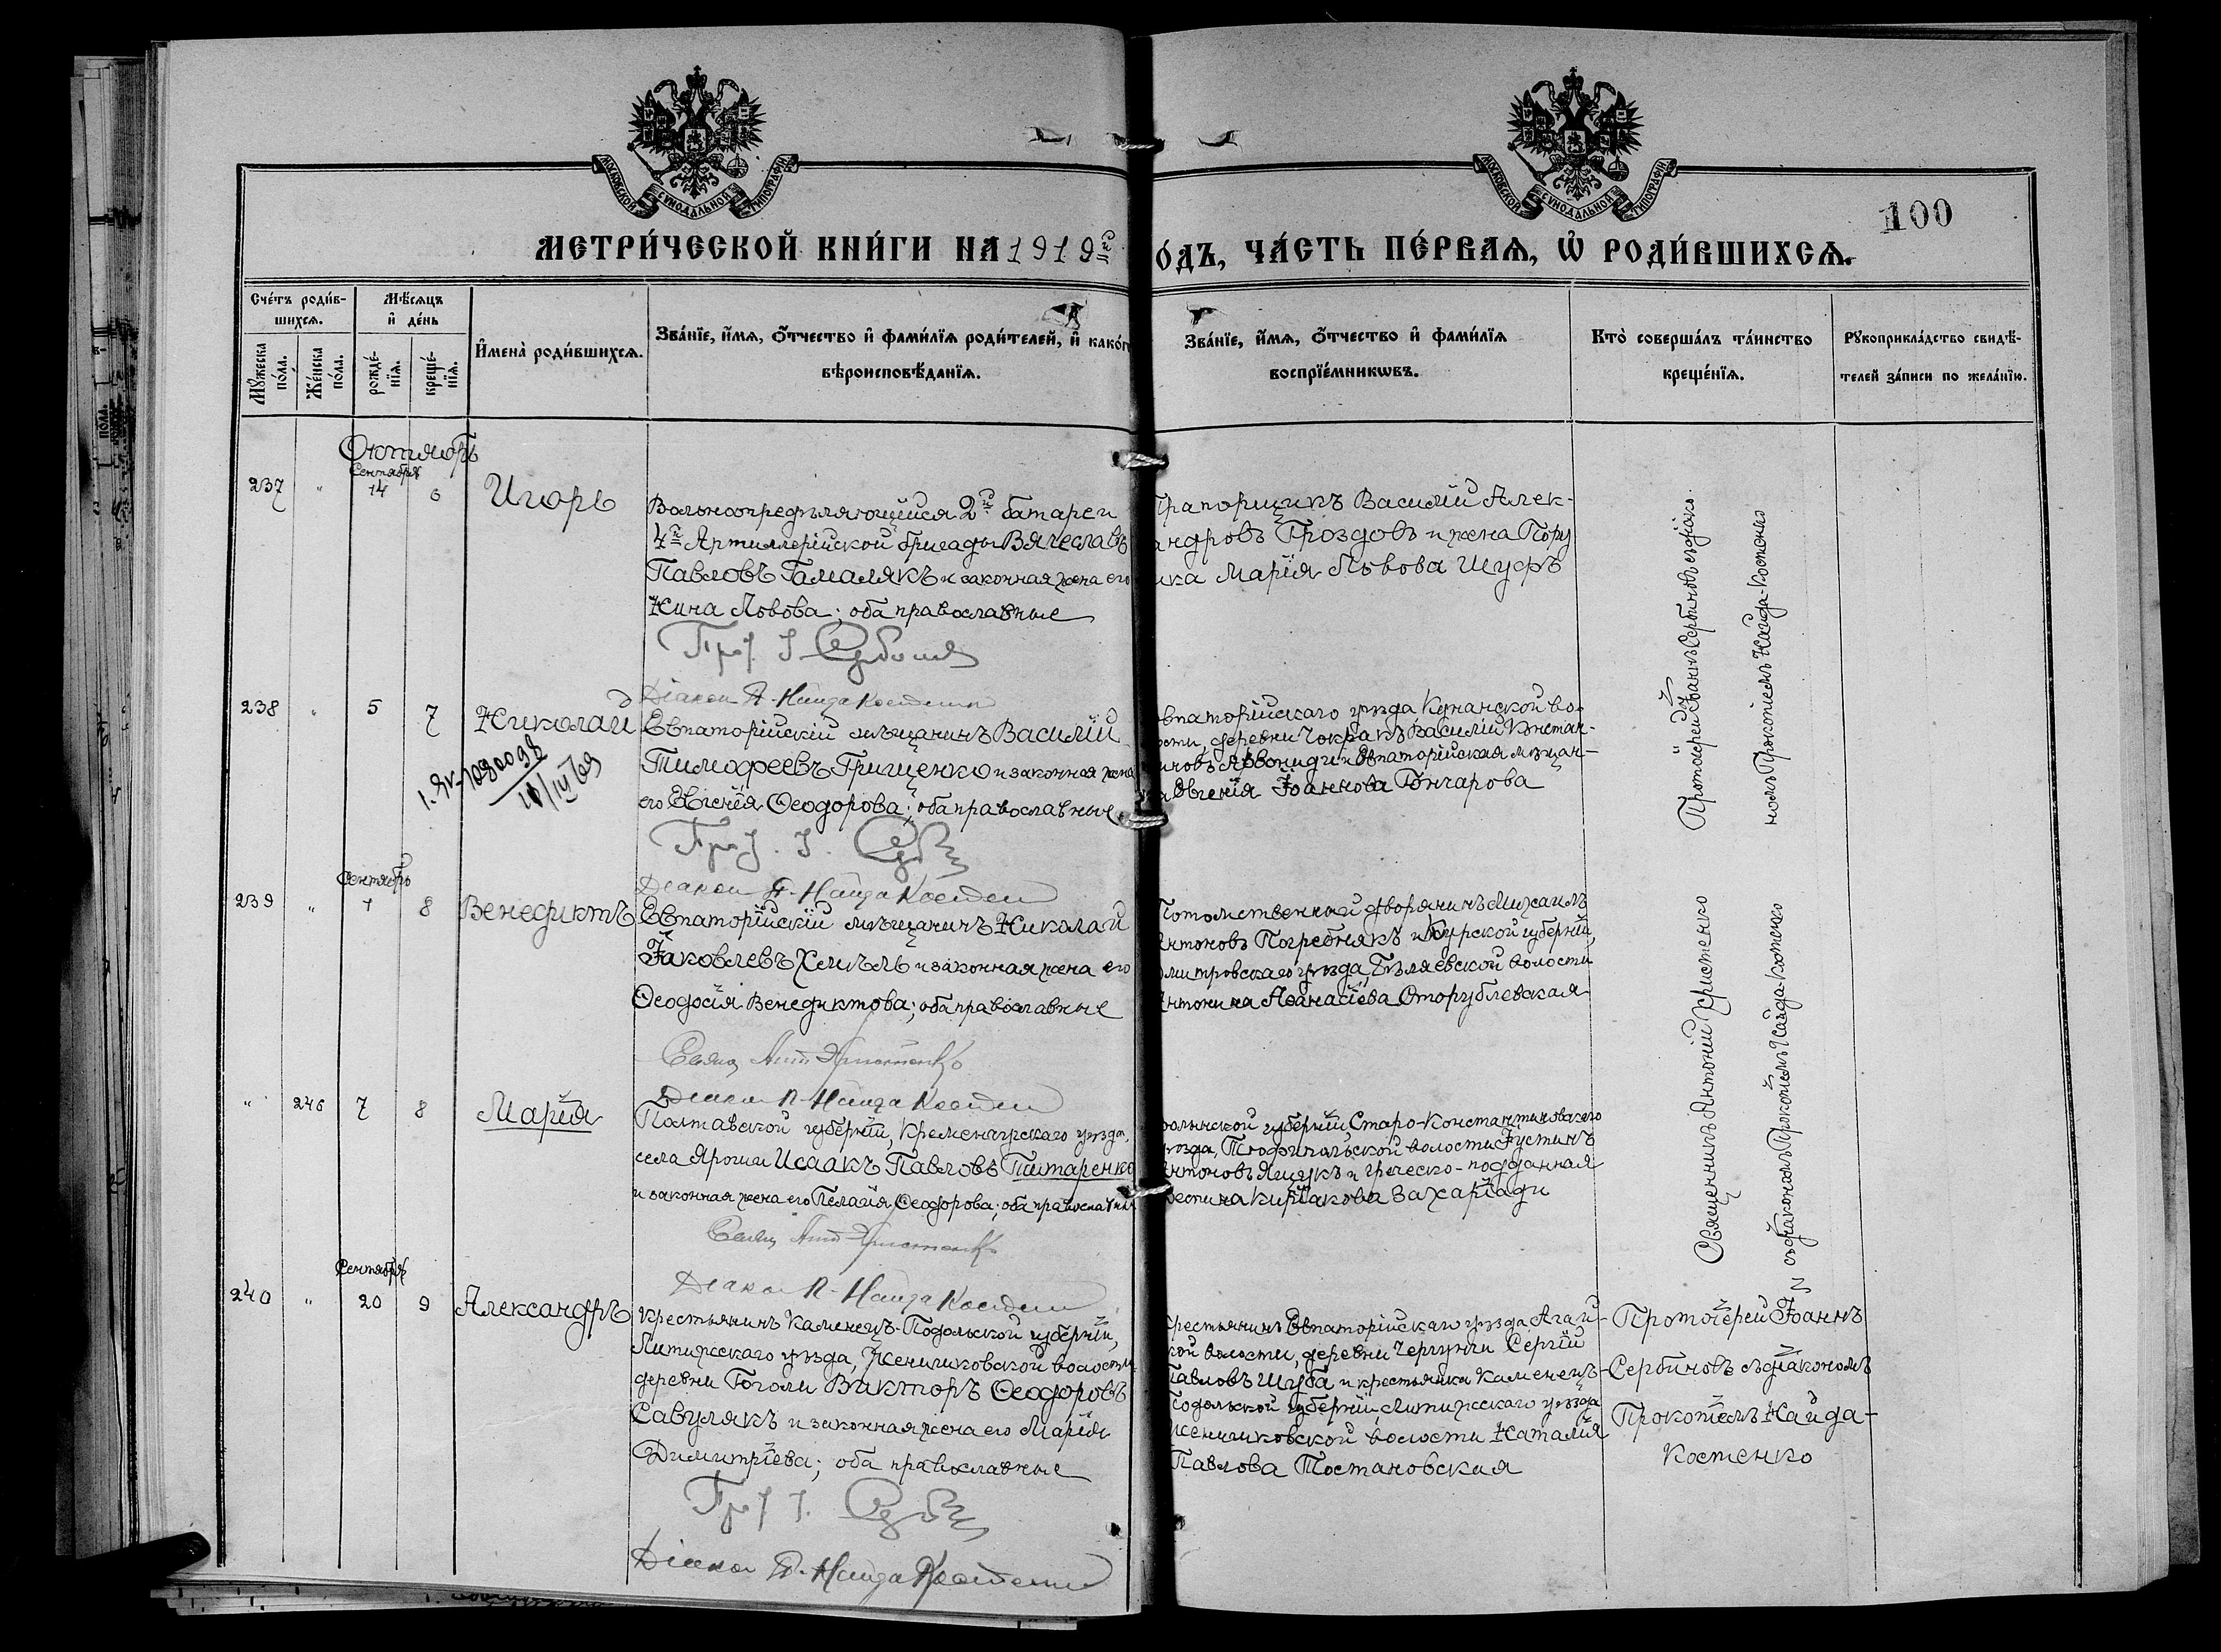 МОСКОВСКОЙ СѴНОДАЛЬНОЙ ТИПОГРАФІИ
МОСКОВСКОЙ СѴНОДАЛЬНОЙ ТИПОГРАФІИ
100
МЕТРИ́ЧЕСКОЙ КНИ́ГИ НА 1919й
О́ДЪ, ЧА́СТЬ ПЕ́РВАѦ, Ѡ҆ РОДИ́ВШИХСѦ.
Сче́тъ роди́в-
шихсѧ.
Мѣ́сѧцъ
и҆ де́нь
Мꙋ́жеска
по́ла.
Же́нска
по́ла.
рожде́-
нїѧ.
креще́-
нїѧ.
И҆мена̀ роди́вшихсѧ.
Зва́нїе, и҆́мѧ, ѻ҆́тчество и҆ фами́лїѧ роди́телей, и҆ како́г
вѣроисповѣ́данїѧ.
Зва́нїе, и҆́мѧ, ѻ҆́тчество и҆ фами́лїѧ
воспрїе́мникѡвъ.
Кто̀ соверша́лъ та́инство
креще́нїѧ.
Рꙋкоприкла́дство свидѣ́-
телей за́писи по жела́нїю.
Октябрь
Сентября
237 " 14 6 Игорь
Вольноопредѣляющійся 2й батареи
4й Артиллерійской бригады Вячеславъ
Павловъ Гамалякъ и законная жена его
Нина Львова; оба православные
Прот. І. Сербиновъ
Діакон П. Найда Костенко
Прапорщикъ Василій Алек-
андровъ Гроздовъ и жена Пору
ика Марія Львова Шуфъ
Протоіерей Іоаннъ Сербиновъ съ діако-
номъ Прокопіемъ Найда-Костенко
238 " 5 7 Николай
Евпаторійскій мѣщанинъ Василій
Тимофеевъ Грищенко и законная жена
его Евгенія Ѳеодорова; оба православные
Прот. І. Серб
Діакон П. Найда Костен
впаторійскаго уѣзда Кунанской во-
ости, деревни Чокракъ Василій Констан-
иновъ и Евпаторійская мѣщан-
а Евгенія Іоаннова Гончарова
Сентябрь
239 " 1 8 Венедиктъ
Евпаторійскій мѣщанинъ Николай
Іаковлевъ Хмѣль и законная жена его
Ѳеодосія Венедиктова; оба православные
Свящ Ант Христенко
Діакон П. Найда Костен
Потомственный дворянинъ Михаилъ
Антоновъ Погребнякъ и Курской губерніи,
Дмитровскаго уѣзда, Бѣляевской волости
Антонина Аѳанасіева Сторублевская
Священникъ Антоній Христенко
съ діакономъ Прокопіемъ Найда-Костенко
" 246 7 8 Марія
Полтавской губерніи, Кременчугскаго уѣзда,
села Ярошы Исаакъ Павловъ Титаренко
и законная жена его Пелагія Ѳеодорова; оба православные
Свящ Ант Христенко
Діакон П. Найда Костен
олынской губерніи Старо-Константиновскаго
ѣзда, Теофипольской волости Іустинъ
Антоновъ Ящукъ и греческо-подданная
Киріакова Захаріади
Сентября
240 " 20 9 Александръ
Крестьянинъ Каменецъ-Подольской губерніи,
Литижскаго уѣзда, Женишковской волости
деревни Гоголи Викторъ Ѳеодоровъ
Савулякъ и законная жена его Марія
Димитріева; оба православные
Прот І. Серб
Діакон П. Найда Костенко
рестьянинъ Евпаторійскаго уѣзда Агай-
кой волости, деревни Чергунчи Сергій
Павловъ Шуба и крестьянка Каменецъ-
Подольской губерніи, Литижскаго уѣзда
Женишковской волости Наталія
Павлова Постановская
Протоіерей Іоаннъ
Сербиновъ съ діакономъ
Прокопіемъ Найда-
Костенко